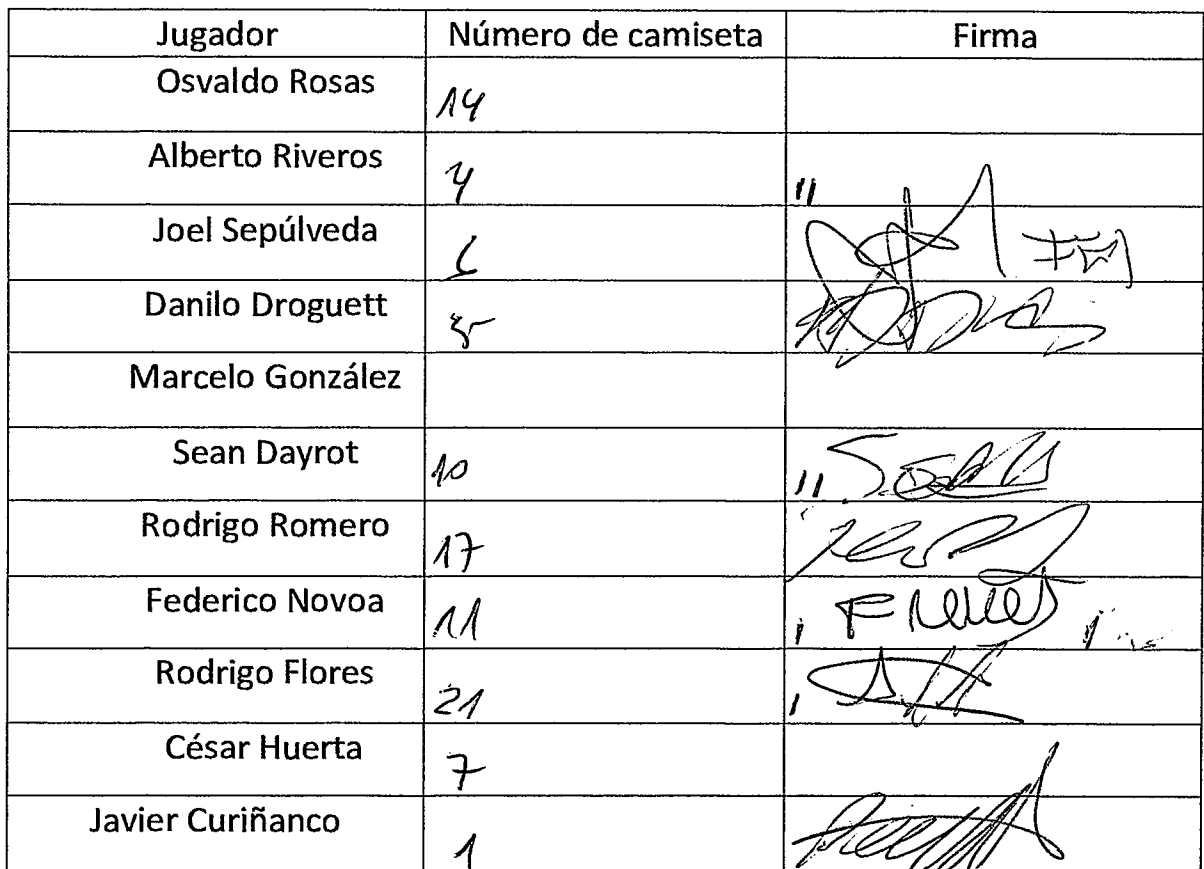 Jugador Número de camiseta Firma
Osvaldo Rosas 14
Alberto Riveros 4
Joel Sepúlveda 6
Danilo Droguett 5
Marcelo González
Sean Dayrot 10
Rodrigo Romero 17
Federico Novoa 11
Rodrigo Flores 21
César Huerta 7
Javier Curiñanco 1